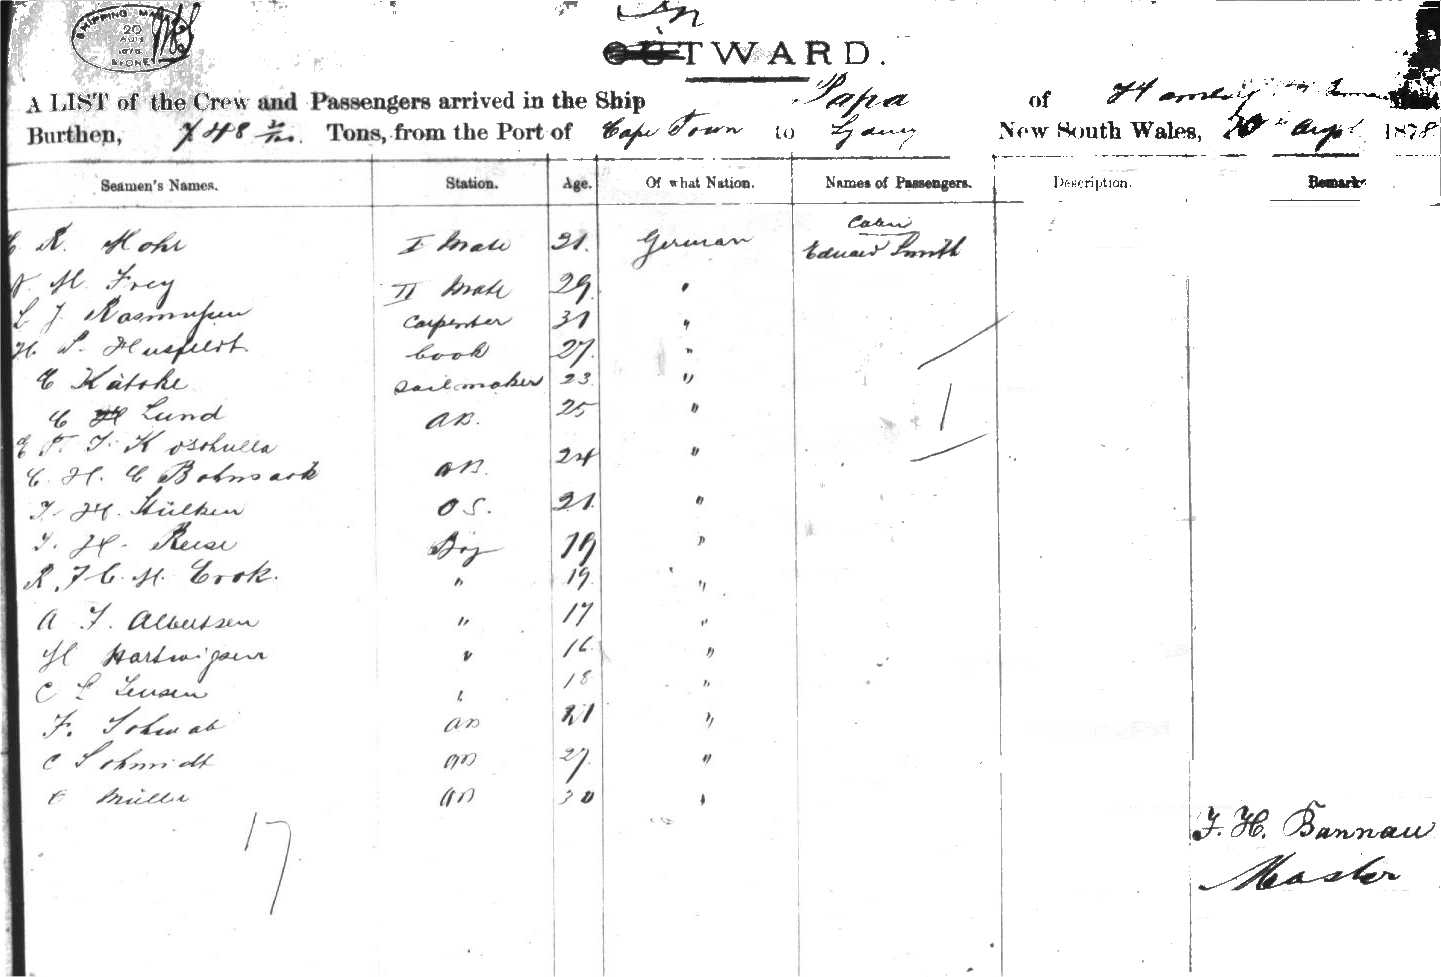 SHIPPING MASTER
20
AUG
1878
SYDNEY
In
OUTWARD.
A LIST of the Crew and Passengers arrived in the Ship Papa of Hamburg
Burthen, 748 Tons, from the Port of Cape Town to Sydney New South Wales, 20th Augt 1878
Seamen's Names. Station. Age. Of what Nation. Names of Passengers. Description. Remarks
Cabin
R. Mohr I Mate 21. German Eduard Smith
M. Frey II Mate 29. "
L J. Rasmussen Carpenter 31 "
H. P. Husfeldt Cook 27. "
C Kätske Sailmaker 23 "
C Lund AB. 25 "
C F. J. Koschulla
C. H. C Bohnsack AB. 24 "
J. H. Hülken O S. 21. "
J. H. Reese Boy 19 "
R. J C. M. Crok. " 19. "
A J. Albertsen " 17 "
H Hartwigsen " 16 "
C L Jensen " 18 "
F. Schwab AB 21 "
C Schmidt AB 27. "
C Müller AB 30 "
17 1
J. H. Bannau
Master